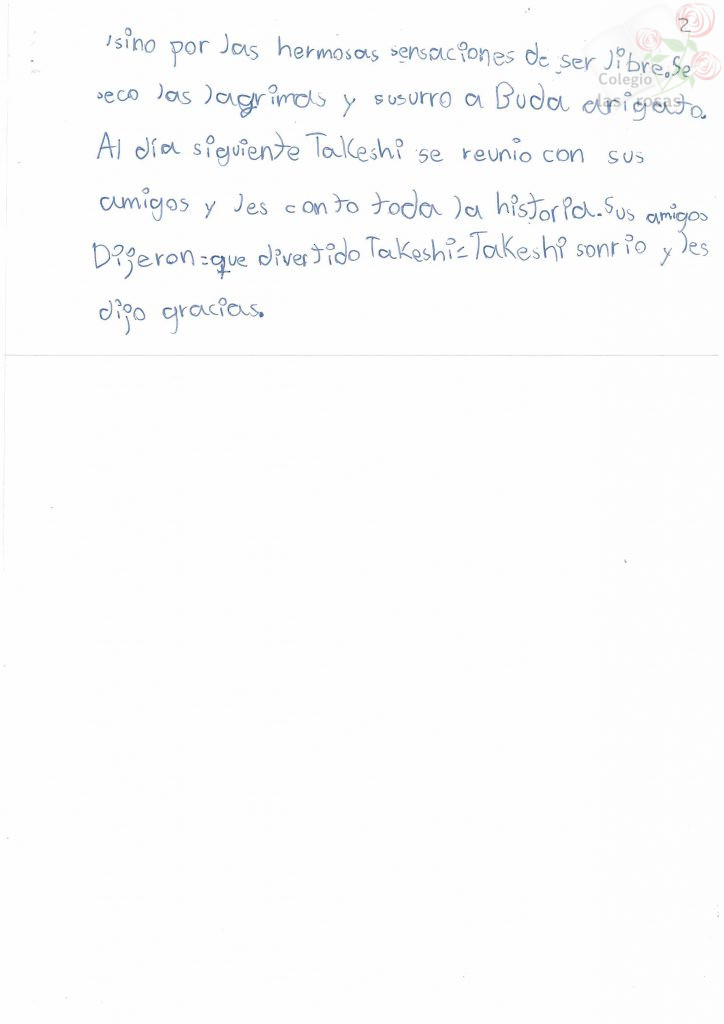 2
,sino por las hermosas sensaciones de ser libre.Se
Colegio
las rosas
seco las lagrimas y susurro a Buda arigato.
Al día siguiente Takeshi se reunio con sus
amigos y les conto toda la historia.Sus amigos
Dijeron=que divertido Takeshi=Takeshi sonrio y les
dijo gracias.